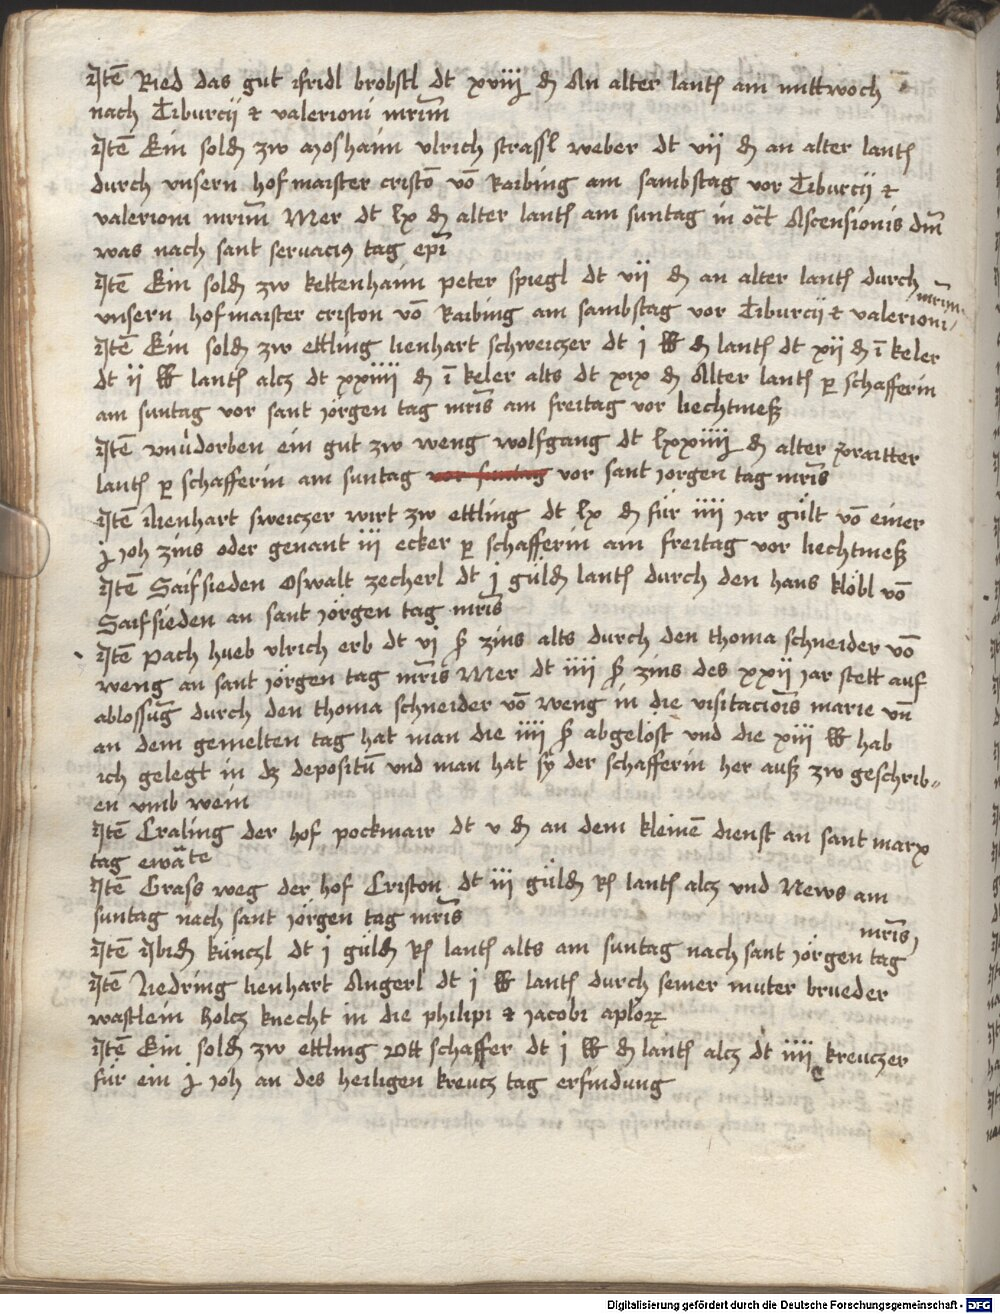 Itē Ried das gut ifridl bröbstl dt xviij ₰ An alter lantſ am mittwoch
nach Tiburcij & valerioni mrim̄
Itē Ein sold̄ zw moshaim vlrich strassl weber dt vij ₰ an alter lantſ
durch vnsern hofmaister cristō vō Raibing am sambstag vor Tiburcij &
valerioni mrim̄ Mer dt lx ₰ alter lantſ am suntag in oct̄ Ascensionis dm̄
was nach sant servacius tag epi
Itē Ein sold̄ zw kettenhaim peter spiegl dt vij ₰ an alter lantſ durch
vnsern hofmaister criston vō Raibing am sambstag vor Tiburcij & valerioni mrim̄
Itē Ein sold̄ zw ettling lienhart schweiczer dt j ℔ ₰ lantſ dt xij ₰ ī keler
dt ij ℔ lantſ alcz dt xxiiij ₰ ī keler alts dt xix ₰ Alter lantſ ꝑ schafferin
am suntag vor sant jörgen tag mris̄ am freitag vor liechtmeß
Itē vnūdorben ein gut zw weng wolfgang dt lxxiiij ₰ alter
lantſ ꝑ schafferin am suntag vor suntag vor sant jorgen tag mris̄
Itē lienhart sweiczer wirt zw ettling dt lx ₰ für iiij jar gült vō einer
j joh zins oder genant iij ecker ꝑ schafferin am freitag vor liechtmeß
Itē Saifsieden Oswalt zecherl dt j güld̄ lantſ durch den hans klöbl vō
Saifsieden an sant jörgen tag mris̄
Itē pach hueb vlrich erb dt vj ẞ zins alts durch den thoma schneider vō
weng an sant jörgen tag mris̄ Mer dt iiij ẞ zins des xxij jar stett auf
ablossūg durch den thoma schneider vō weng in die visitaciois̄ marie vn̄
an dem gemelten tag hat man die iiij ẞ abgelöst vnd die xiij ℔ hab
ich gelegt in dz depositū vnd man hat sÿ der schafferin her auß zw geschrib-
en vmb wein
Itē Craling der hof pockmair dt v ₰ an dem kleinē dienst an sant marx
tag ewāte
Itē Grass weg der hof Criston dt iij güld̄ Rſ lantſ alcz vnd News am
suntag nach sant jörgen tag mris̄
Itē Ibid̄ künczl dt j güld̄ Rſ lantſ alts am suntag nach sant jörgen tag mris̄
Itē Nedring lienhart Angerl dt j ℔ lantſ durch seiner muter brueder
wastlein holcz knecht in die philipi & jacobi aplōrꝝ
Itē Ein sold̄ zw ettling ott schaffer dt j ℔ ₰ lantſ alcz dt iiij kreuczer
für ein j joh an des heiligen kreucz tag erfindung
Digitalisierung gefördert durch die Deutsche Forschungsgemeinschaft - DFG